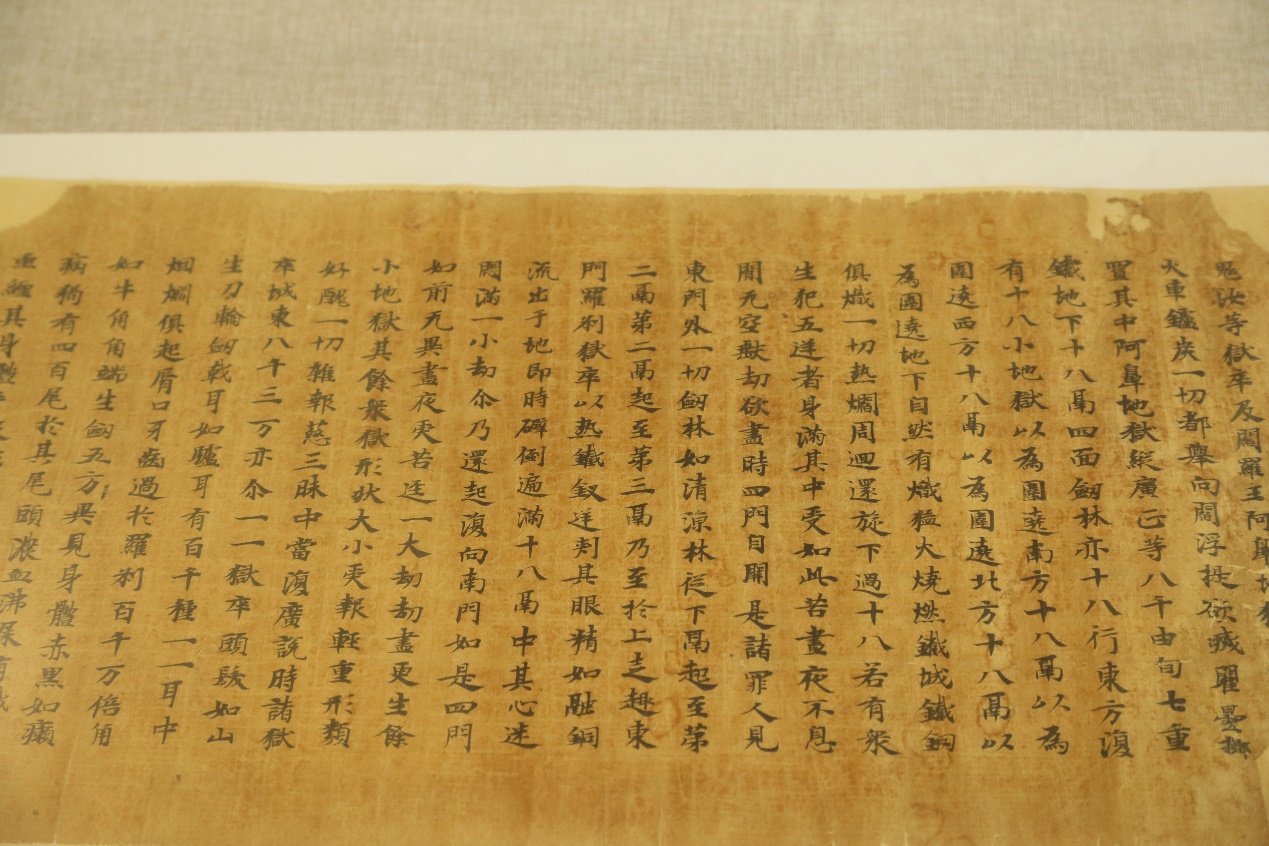 鬼汝等獄卒及閻羅王阿鼻地獄
火車鑪炭一切都舉向閻浮提欲瓕瞿曇
置其中阿鼻地獄縱廣正等八千由旬七重
鐵地下十八鬲四面劒林亦十八行東方復
有十八小地獄以為圍遶南方十八鬲以為
圍遶西方十八鬲以為圍遶北方十八鬲以
為圍遶地下自然有熾猛火燒燃鐵城鐵銅
俱熾一切熱爓周迴還旋下過十八若有衆
生犯五逆者身滿其中受如此苦晝夜不息
開无空獸劫欲盡時四門自開是諸罪人見
東門外一切劒林如清涼林從下鬲起至第
二鬲第二鬲起至第三鬲乃至於上走趣東
門羅刹獄卒以热鐵釵逆刾其眼精如融銅
流出于地即時躃倒遍滿十八鬲中其心迷
悶滿一小劫尒乃還起復向南門如是四門
如前无異晝夜受苦逕一大劫劫盡更生餘
小地獄其餘衆獄形狀大小受報輕重形類
好醜一切雜報慈三昧中當復廣說時諸獄
卒城東八千三万亦尒一一獄卒頭髮如山
生刀輪劒戟耳如驢耳有百千種一一耳中
烟爓俱起脣口牙齒過於羅刹百千万倍角
如牛角角端生劒五方異見身體赤黒如癩
病狗有四百尾於其尾頭濃血沸屎有鐵
重纏其身體